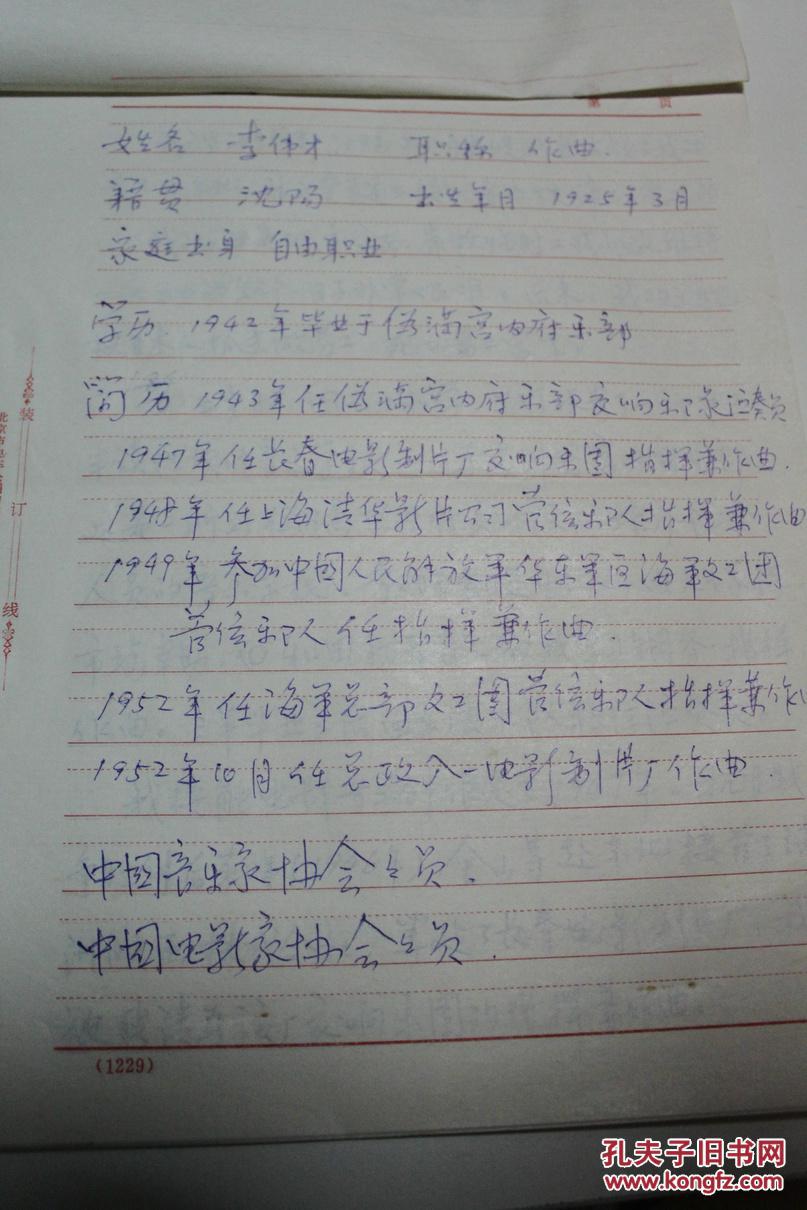 第 页
姓名 李伟才 职称 作曲.
籍贯 沈阳 出生年月 1925年3月
家庭出身 自由职业
学历 1942年毕业于伪满宫内府乐部
简历 1943年任伪满宫内府乐部交响乐队演奏员
1947年任长春电影制片厂交响乐团指挥兼作曲.
1948年任上海清华影片公司管弦乐队指挥兼作曲
1949年参加中国人民解放军华东军区海军文工团
管弦乐队任指挥兼作曲.
1952年任海军总部文工团管弦乐队指挥兼作
1952年10月任总政八一电影制片厂作曲.
中国音乐家协会会员.
中国电影家协会会员.
(1229)
装
订
线
孔夫子旧书网
www.kongfz.com